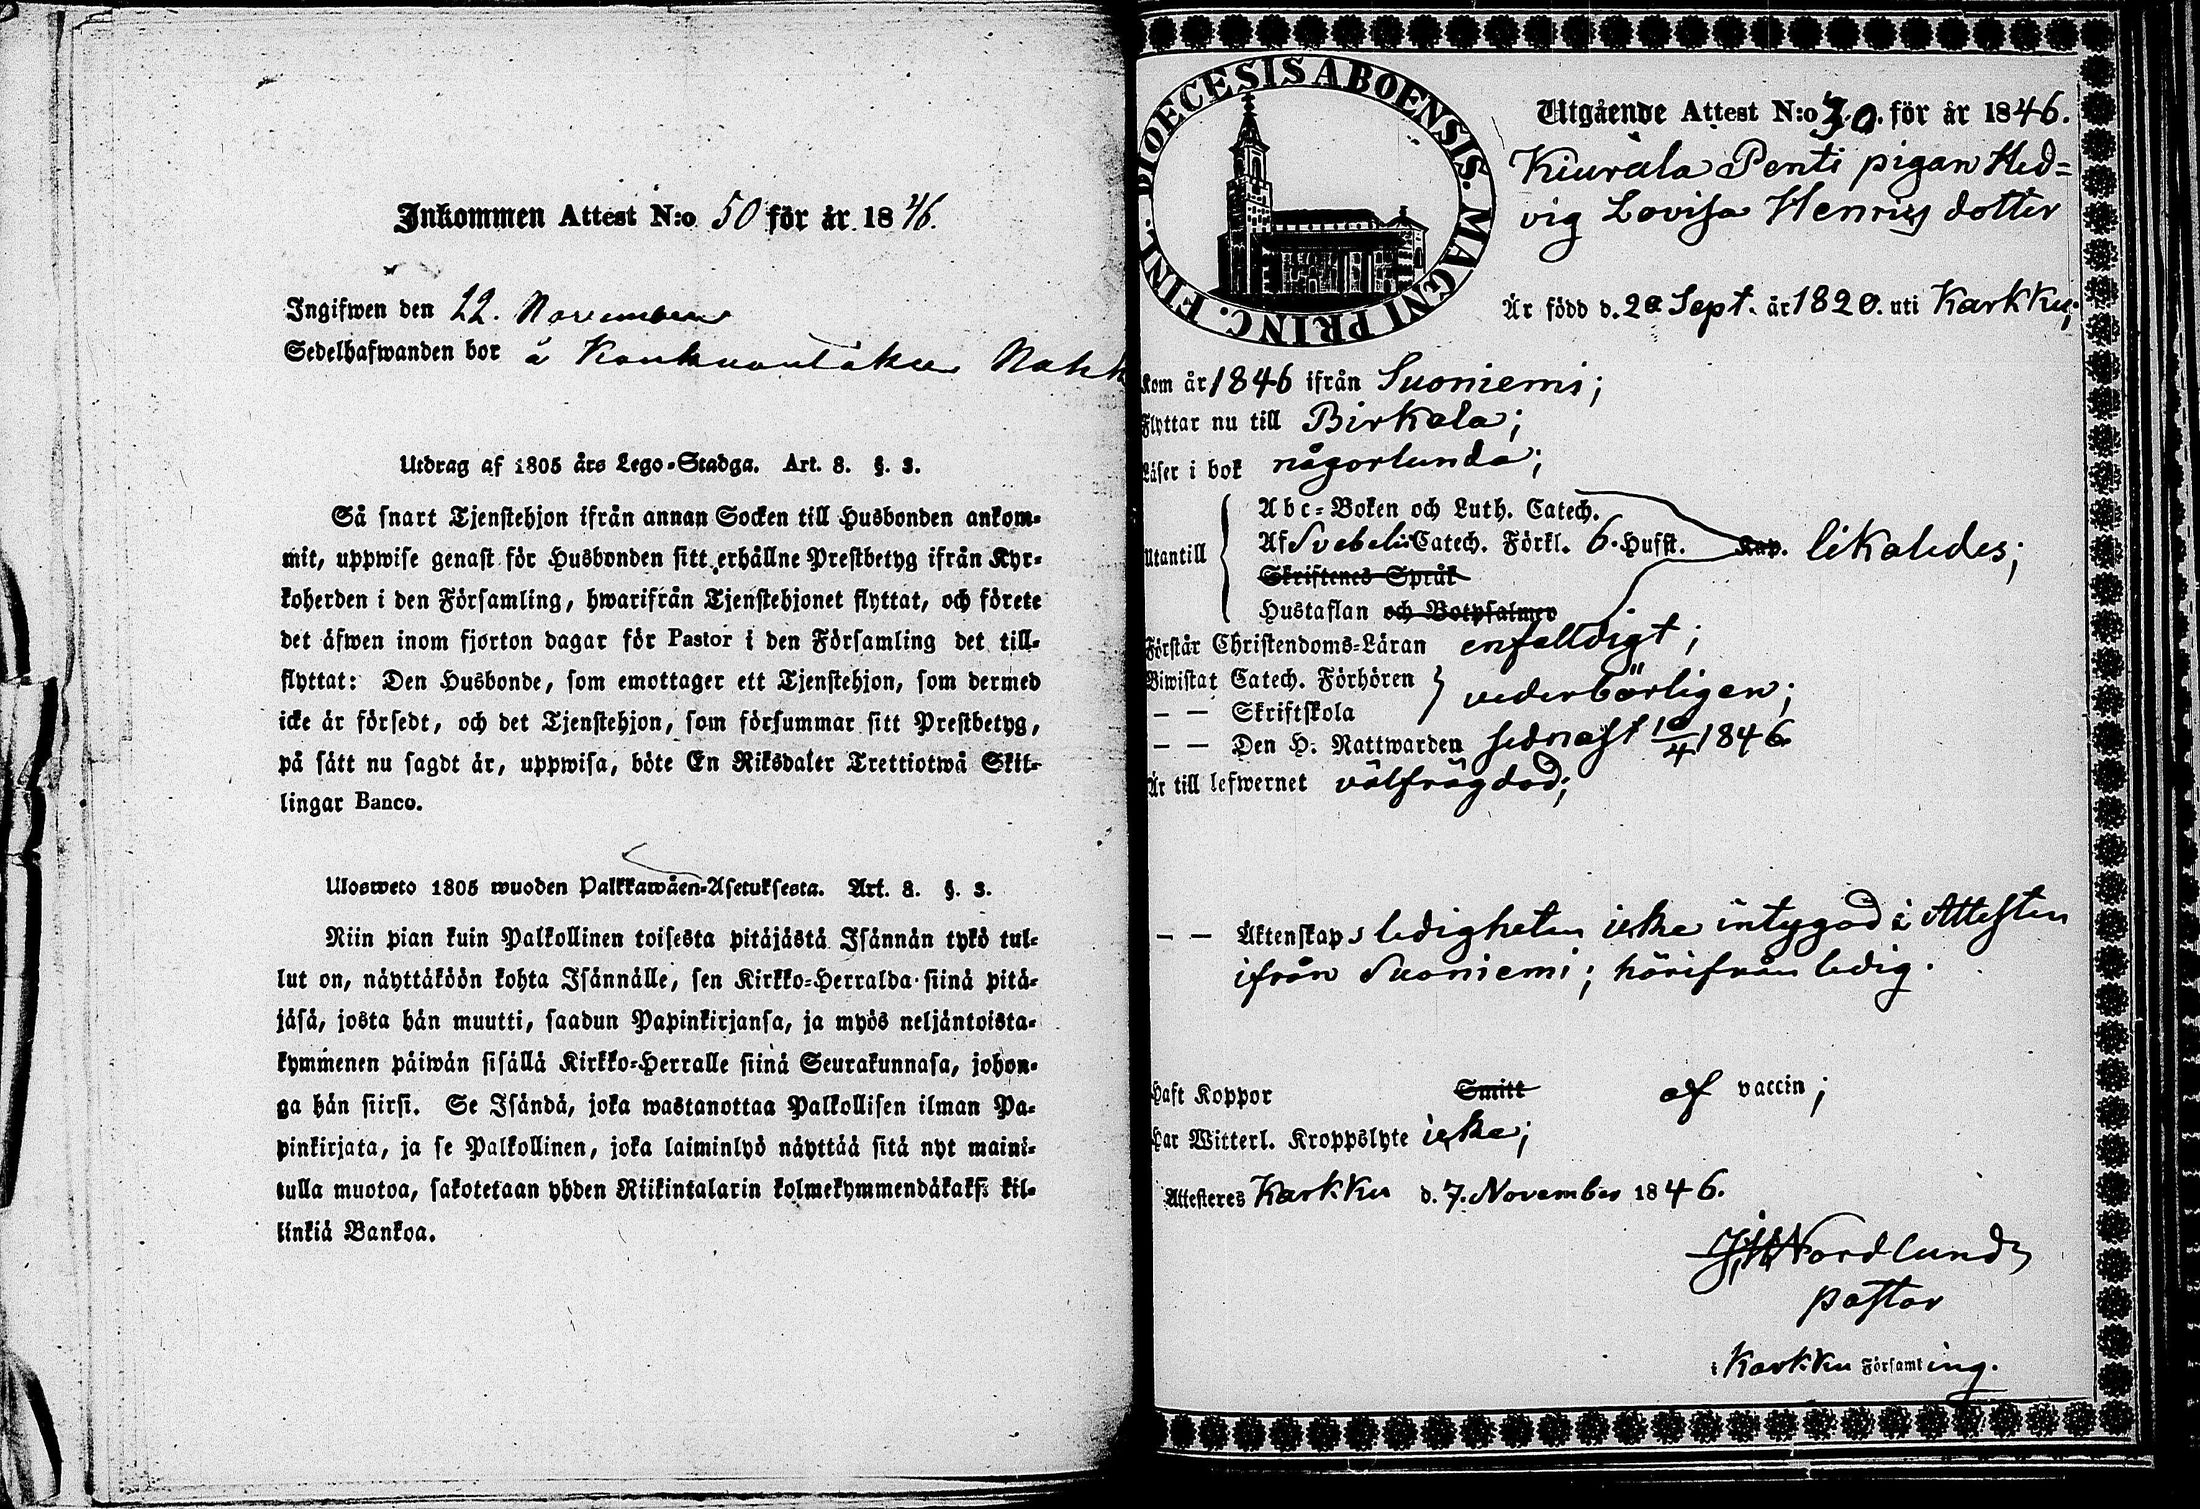 Inkommen Attest N:o 50 för år 1846.
Ingifwen den 22. November
Sedelhafwanden bor å
Utdrag af 1805 års Lego-Stadga. Art. 8. §. 3.
Så snart Tjenstehjon ifrån annan Socken till Husbonden ankom-
mit, uppwise genast för Husbonden sitt erhållne Prestbetyg ifrån Kyr-
koherden i den Församling, hwarifrån Tjenstehjonet flyttat, och förete
det äfwen inom fjorton dagar för Pastor i den Församling det till-
flyttat: Den Husbonde, som emottager ett Tjenstehjon, som dermed
icke är försedt, och det Tjenstehjon, som försummar sitt Prestbetyg,
på sätt nu sagdt är, uppwisa, böte En Riksdaler Trettiotwå Skil-
lingar Banco.
Ulosweto 1805 wuoden Palkkawäen-Asetuksesta. Art. 8. §. 3.
Niin pian kuin Palkollinen toisesta pitäjästä Isännän tykö tul-
lut on, näyttäköön kohta Isännälle, sen Kirkko-Herralda siinä pitä-
jäsä, josta hän muutti, saadun Papinkirjansa, ja myös neljäntoista-
kymmenen päiwän sisällä Kirkko-Herralle siinä Seurakunnasa, johon-
ga hän siirsi. Se Isändä, joka wastanottaa Palkollisen ilman Pa-
pinkirjata, ja se Palkollinen, joka laiminlyö näyttää sitä nyt maini-
tulla muotoa, sakotetaan yhden Riikintalarin kolmekymmendäkaksi kil-
linkiä Bankoa.
DIOECESIS ABOENSIS. MAGNI PRINC. FINL.
Utgående Attest N:o 30. för år 1846.
Kiurala Penti pigan Hed=
vig Lovisa Henrics dotter
Är född d. 20 Sept. år 1820. uti Karkku;
Kom år 1846 ifrån Suoniemi;
Flyttar nu till Birkala;
Läser i bok någorlunda;
Utantill
Abc-Boken och Luth. Catech.
Af Svebelii Catech. Förkl. 6. Hufst. Kap. likaledes;
Skriftenes Språk
Hustaflan och Botpsalmer
Förstår Christendoms-Läran enfalldigt;
Biwistat Catech. Förhören } vederbörligen;
— — Skriftskola
— — Den H. Nattwarden sednast 10/4 1846.
Är till lefwernet välfrägdad;
— — Äktenskaps ledigheten icke intygad i Attesten
ifrån Suoniemi; härifrån ledig.
Haft Koppor Smitt af vaccin;
Har Witterl. Kroppslyte icke;
Attesteres Karkku d. 7. November 1846.
Nordlund
pastor
i Karkku Församling.